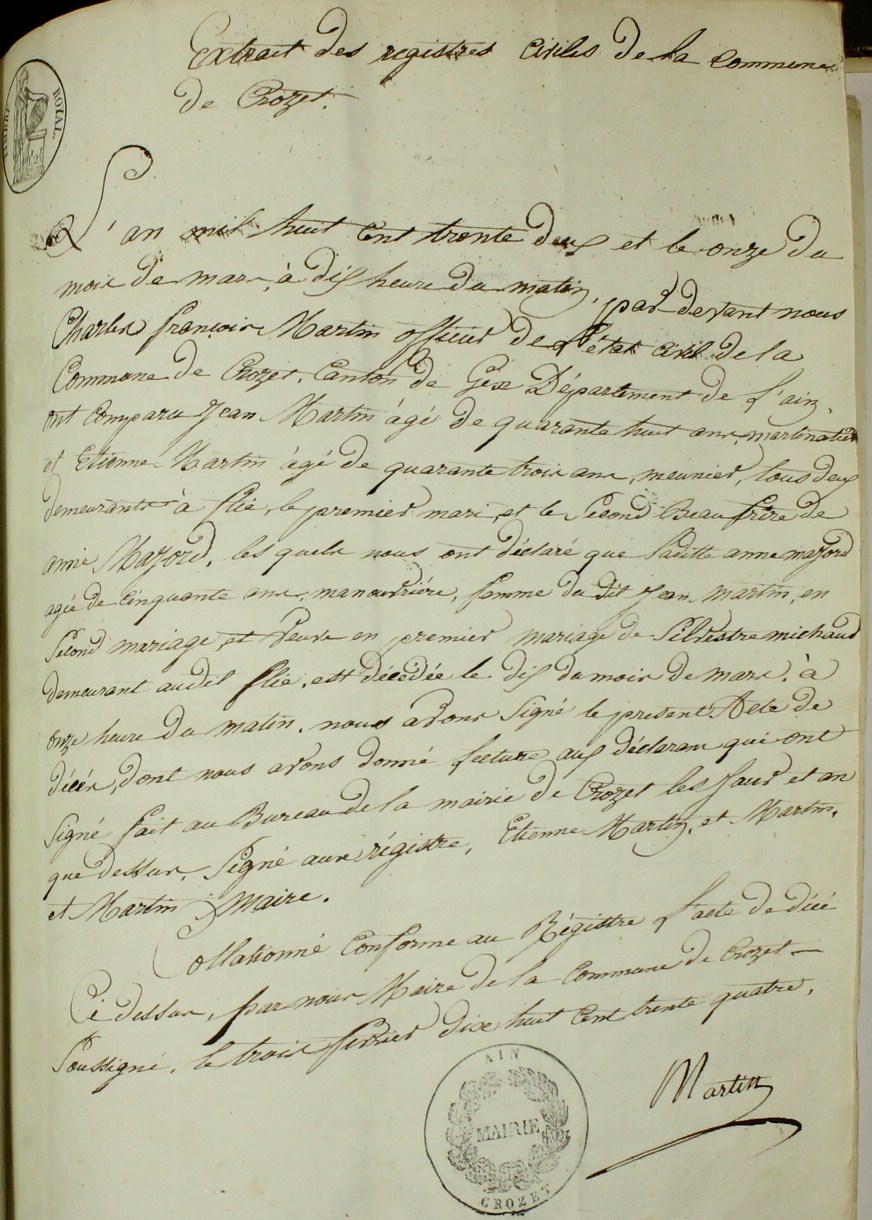 Extrait des registres civiles de la Commune
de Crozet.
TIMBRE ROYAL.
L'an mil huit cent trente deux et le onze du
mois de mars, à dix heure du matin, par devant nous
Charles françois Martin officier de l'état civil de la
Commune de Crozet, Canton de Gex Département de l'ain,
ont comparu Jean Martin âgé de quarante huit ans,
et Etienne Martin âgé de quarante trois ans, meunier, tous deux
demeurants à flie, le premier mari, et le Second Beau frère de
anne Majord, les quels nous ont déclaré que Laditte anne majord
agée de cinquante ans, manouvrière, femme du dit Jean Martin, en
Second mariage, et Veuve en premier mariage de Silvestre michaud
demeurant audit flie, est décédée le dix du mois de mars, à
onze heure du matin, nous avons Signé le présent Acte de
décés, dont nous avons donné lecture aux déclaran qui ont
Signé fait au Bureau de la mairie de Crozet les Jour et an
que dessus, Signé aux régistre, Etienne Martin, et Martin,
et Martin Maire.
Collationné Conforme au Régistre l'acte de décé
Ci dessus, par nous Maire de la Commune de Crozet
Soussigné, le trois fevrier dix huit Cent trente quatre,
Martin
AIN
MAIRIE
CROZET